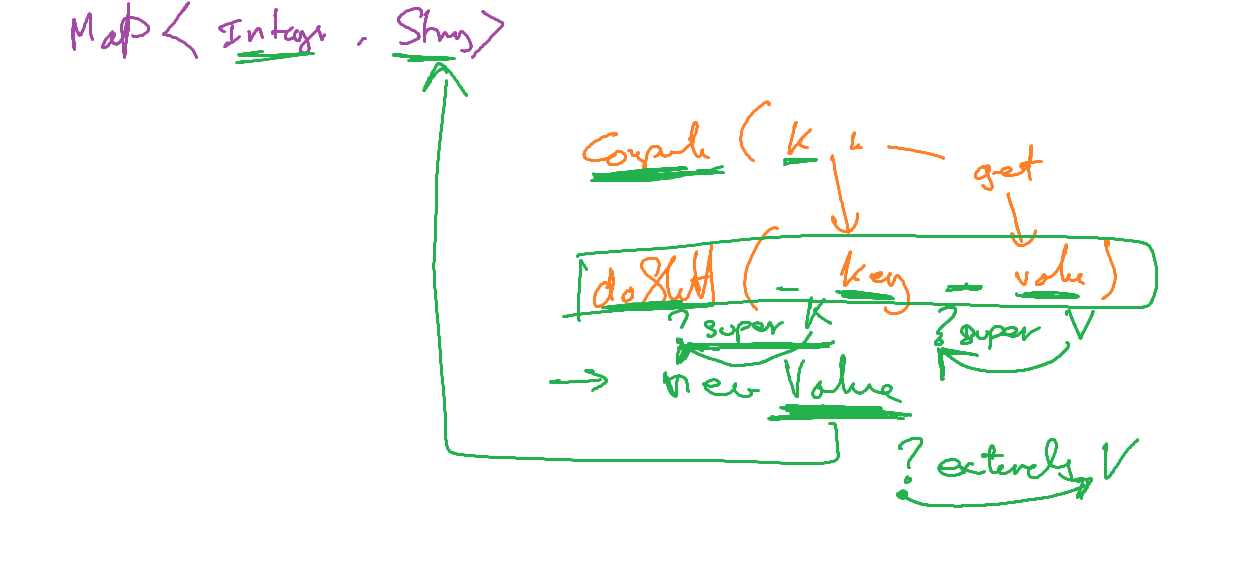 Map < Integer , String >
Compute ( k ,
get
doStuff ( _ key _ value )
? super K ? super V
→ new Value
? extends V